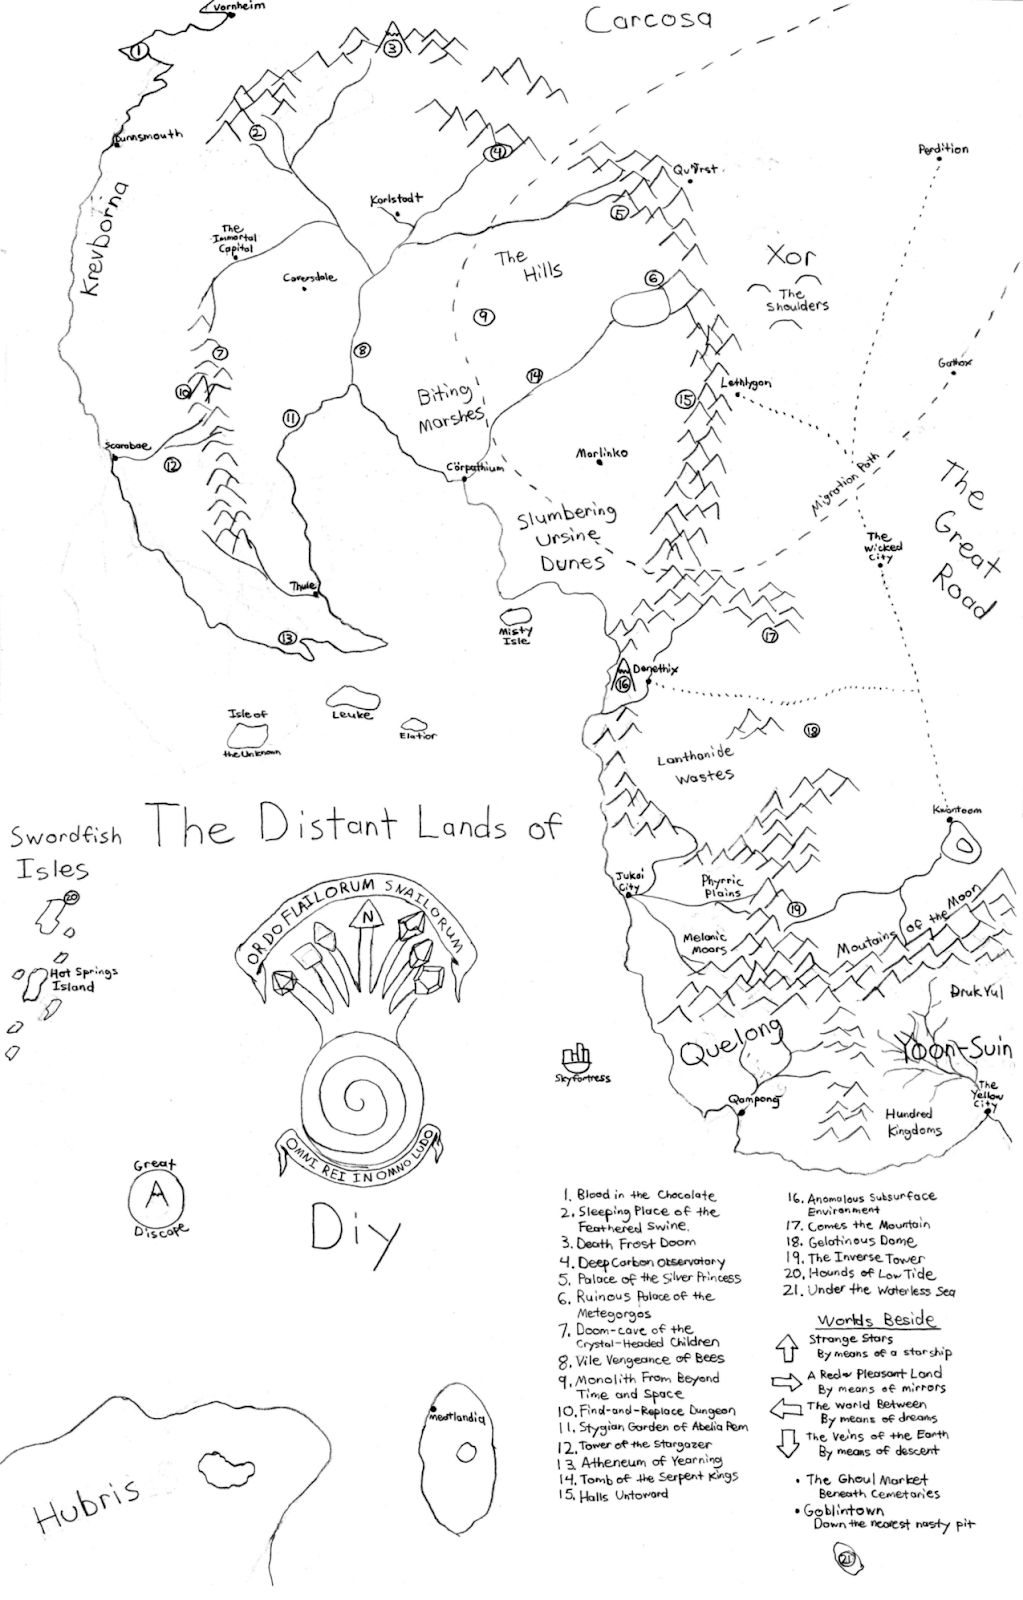 Vornheim
Carcosa
1
3
Dunnsmouth
2
4
Perdition
Qu'irst
Karlstadt
5
Krevborna
The
Immortal
Capitol
The
Hills
Xor
Caversdale
6
The
Shoulders
9
7
8
14
Gathox
10
Biting
Marshes
15
Lethlygon
11
Scarabae
12
Cörpathium
Marlinko
Migration Path
The
Great
Road
Slumbering
Ursine
Dunes
The
Wicked
City
Thule
Misty
Isle
13
17
16
Denethix
Isle of
the Unknown
Leuke
Elatior
18
Lanthanide
Wastes
Swordfish
Isles
The Distant Lands of
Kwantoom
20
Jukai
City
Phyrric
Plains
19
Moutains of the Moon
ORDO FLAILORUM SNAILORUM
N
Melanic
Moors
Hot Springs
Island
Druk Yul
Quelong
Yoon-Suin
Skyfortress
Qampong
The
Yellow
City
Hundred
Kingdoms
OMNI REI IN OMNO LUDO
Great
Discope
Diy
1. Blood in the Chocolate
2. Sleeping Place of the
Feathered Swine.
3. Death Frost Doom
4. Deep Carbon Observatory
5. Palace of the Silver Princess
6. Ruinous Palace of the
Metegorgos
7. Doom-cave of the
Crystal-Headed Children
8. Vile Vengeance of Bees
9. Monolith From Beyond
Time and Space
10. Find-and-Replace Dungeon
11. Stygian Garden of Abelia Prem
12. Tower of the Stargazer
13. Atheneum of Yearning
14. Tomb of the Serpent Kings
15. Halls Untoward
16. Anomalous Subsurface
Environment
17. Comes the Mountain
18. Gelatinous Dome
19. The Inverse Tower
20. Hounds of Low Tide
21. Under the Waterless Sea
Worlds Beside
Strange Stars
By means of a starship
A Red & Pleasant Land
By means of mirrors
The World Between
By means of dreams
The Veins of the Earth
By means of descent
• The Ghoul Market
Beneath Cemetaries
• Goblintown
Down the nearest nasty pit
21
Meatlandia
Hubris